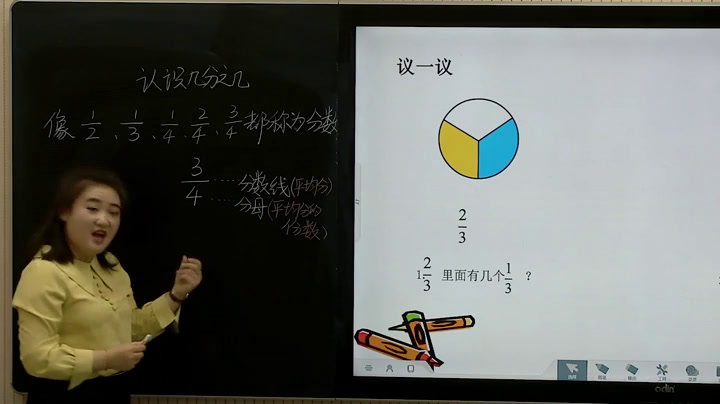 认识几分之几
像1/2、1/3、1/4、2/4、3/4都称为分数
3/4
分数线(平均分)
分母(平均分的
份数)
议一议
2/3
1.2/3 里面有几个1/3 ?
odin